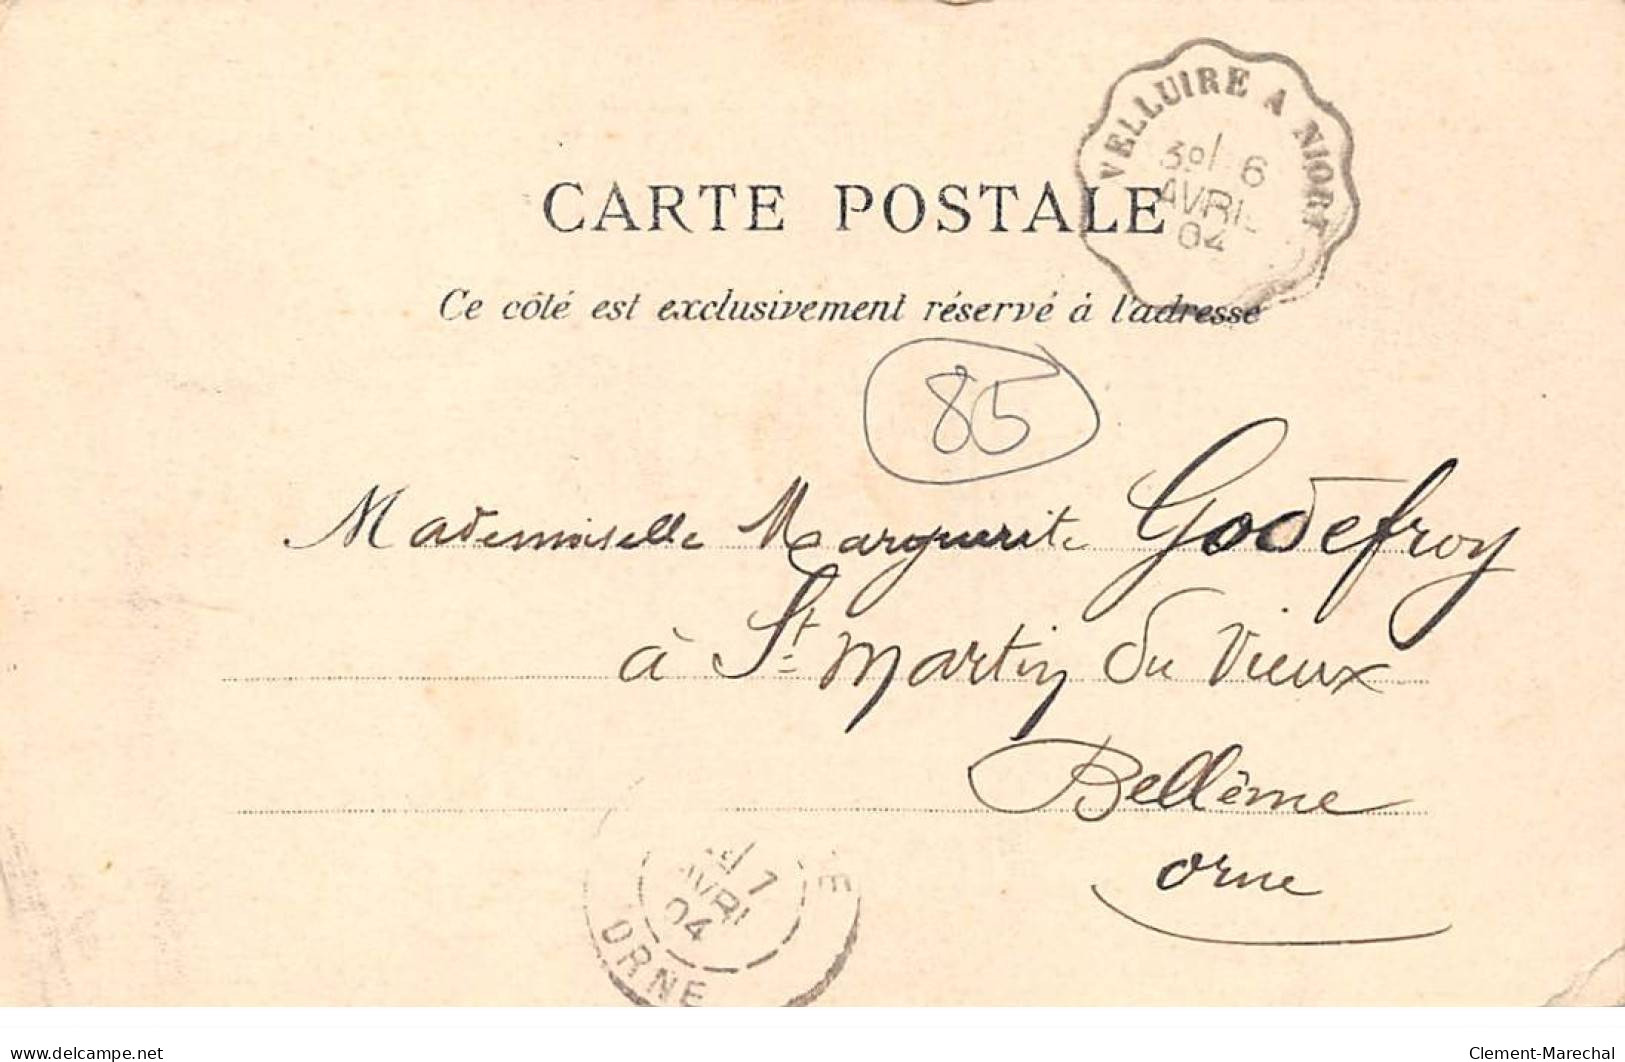 VELLUIRE A NIORT
3º 6
AVRIL
04
CARTE POSTALE
Ce côté est exclusivement réservé à l'adresse
85
Mademoiselle Marguerite Godefroy
à St Martin du Vieux
Bellême
Orne
7
AVRI
04
ORNE
www.delcampe.net
Clement-Marechal